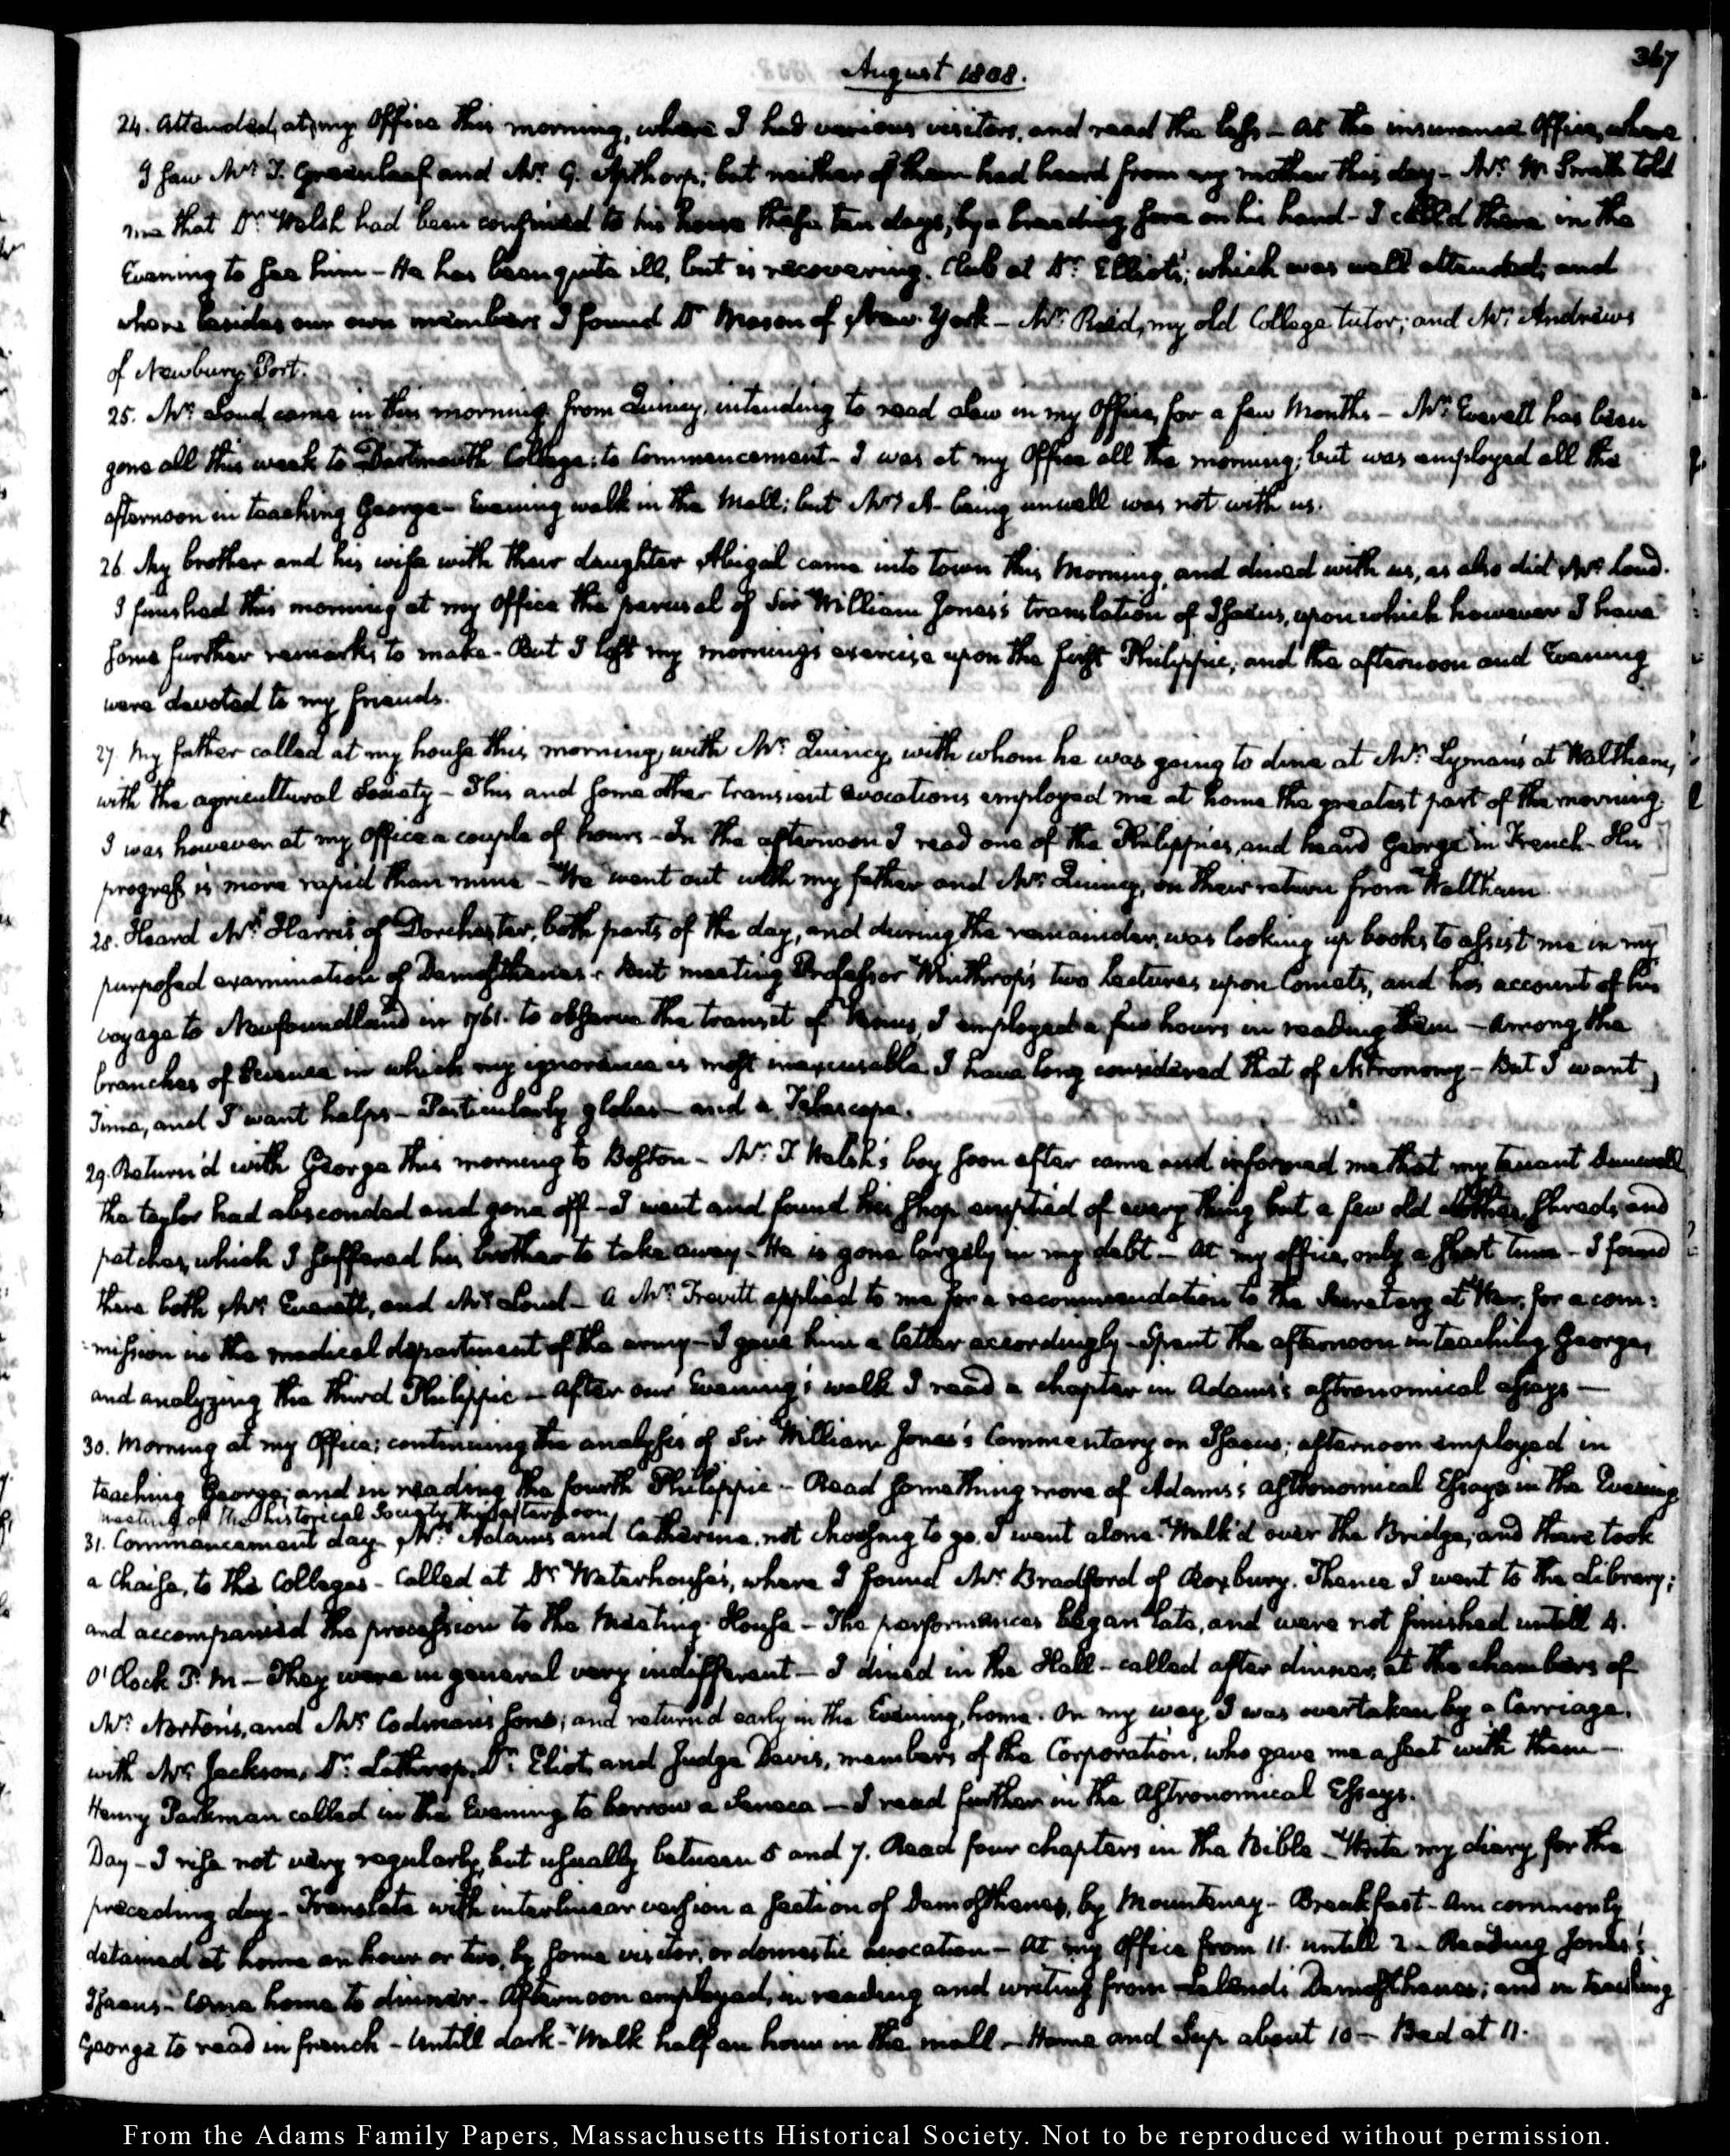 367
August 1808.
24. Attended, at my Office this morning, where I had various visitors, and read the less — At the insurance Office, where
I saw Mr. J. Greenleaf and Mr. G. Apthorp; but neither of them had heard from my mother this day — Mr. W. Smith told
me that Dr. Welsh had been confined to his house these ten days, by a breeding sore on his hand — I call'd there in the
Evening to see him — He has been quite ill, but is recovering. Club at Dr. Elliot's; which was well attended; and
where besides our own members I found Dr. Mason of New-York — Mr. Reid, my old College tutor; and Mr. Andrews
of Newbury-Port.
25. Mr. Loud came in this morning from Quincy, intending to read Law in my Office, for a few Months — Mr. Everett has been
gone all this week to Dartmouth College: to Commencement — I was at my Office all the morning; but was employed all the
afternoon in teaching George — Evening walk in the Mall; but Mrs. A— being unwell was not with us.
26. My brother and his wife with their daughter Abigail came into town this Morning, and dined with us, as also did Mr. Loud.
I finished this morning at my Office the perusal of Sir William Jones's translation of Isaeus, upon which however I have
some further remarks to make — But I left my mornings exercise upon the first Philippic; and the afternoon and Evening
were devoted to my friends.
27. My father called at my house this morning, with Mr. Quincy, with whom he was going to dine at Mr. Lyman's at Waltham,
with the agricultural Society — This and some other transient avocations employed me at home the greatest part of the morning.
I was however at my Office a couple of hours — In the afternoon I read one of the Philippics, and heard George in French — His
progress is more rapid than mine — We went out with my father and Mr. Quincy, on their return from Waltham.
28. Heard Mr. Harris of Dorchester, both parts of the day, and during the remainder, was looking up books to assist me in my
purposed examination of Demosthenes — But meeting Professor Winthrop's two Lectures upon Comets, and his account of his
voyage to Newfoundland in 1761. to observe the transit of Venus, I employed a few hours in reading them — Among the
branches of Science in which my ignorance is most inexcusable, I have long considered that of Astronomy — But I want
Time, and I want helps — Particularly globes — and a Telescope.
29. Return'd with George this morning to Boston — Mr. T Welsh's boy soon after came and informed me that my tenant
the taylor had absconded and gone off — I went and found his shop emptied of every thing but a few old clothes, shreds, and
patches, which I suffered his brother to take away — He is gone largely in my debt — At my office, only a short time — I found
there both Mr. Everett, and Mr. Loud — A Mr. Trevitt applied to me for a recommendation to the Secretary at War, for a com:
:mission in the medical department of the army — I gave him a letter accordingly — Spent the afternoon in teaching George,
and analyzing the third Philippic — After our Evening's walk I read a chapter in Adams's astronomical essays —
30. Morning at my Office; continuing the analysis of Sir William Jones's Commentary on Isaeus; afternoon employed in
teaching George; and in reading the fourth Philippic — Read something more of Adams's astronomical Essays in the Evening
meeting of the historical Society this afternoon
31. Commencement day — Mrs. Adams and Catherine, not choosing to go, I went alone — Walk'd over the Bridge, and there took
a Chaise, to the Colleges — Called at Dr. Waterhouse's, where I found Mr. Bradford of Roxbury. Thence I went to the Library;
and accompanied the procession to the Meeting-House — The performances began late, and were not finished untill 4.
O'Clock P.M — They were in general very indifferent — I dined in the Hall — called after dinner, at the chambers of
Mr. Norton's, and Mr. Codman's sons; and return'd early in the Evening, home. On my way, I was overtaken by a Carriage,
with Mr. Jackson, Dr. Lathrop, Dr. Eliot, and Judge Davis, members of the Corporation, who gave me a seat with them —
Henry Parkman called in the Evening to borrow a Seneca — I read further in the Astronomical Essays.
Day — I rise not very regularly, but usually between 5 and 7. Read four chapters in the Bible — Write my diary for the
preceding day — Translate with interlinear version a section of Demosthenes, by Mountenay — Breakfast — Am commonly
detained at home an hour or two, by some visitor, or domestic avocation — At my Office from 11. untill 2 — Reading Jones's
Isaeus — Come home to dinner — Afternoon employed, in reading and writing from Leland's Demosthenes; and in teaching
George to read in french — Untill dark — Walk half an hour in the mall — Home and Sup about 10 — Bed at 11.
From the Adams Family Papers, Massachusetts Historical Society. Not to be reproduced without permission.